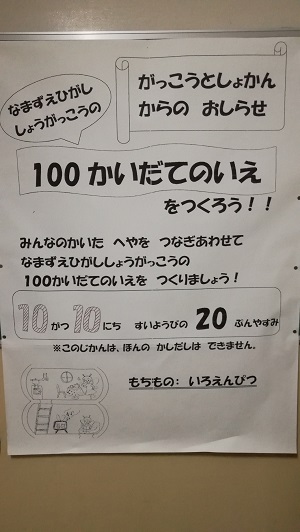 なまずえひがし
しょうがっこうの
がっこうとしょかん
からの おしらせ
100かいだてのいえ
をつくろう！！
みんなのかいた へやを つなぎあわせて
なまずえひがししょうがっこうの
100かいだてのいえを つくりましょう！
10がつ10にち すいようびの 20ぷんやすみ
※このじかんは、ほんの かしだしは できません。
もちもの： いろえんぴつ